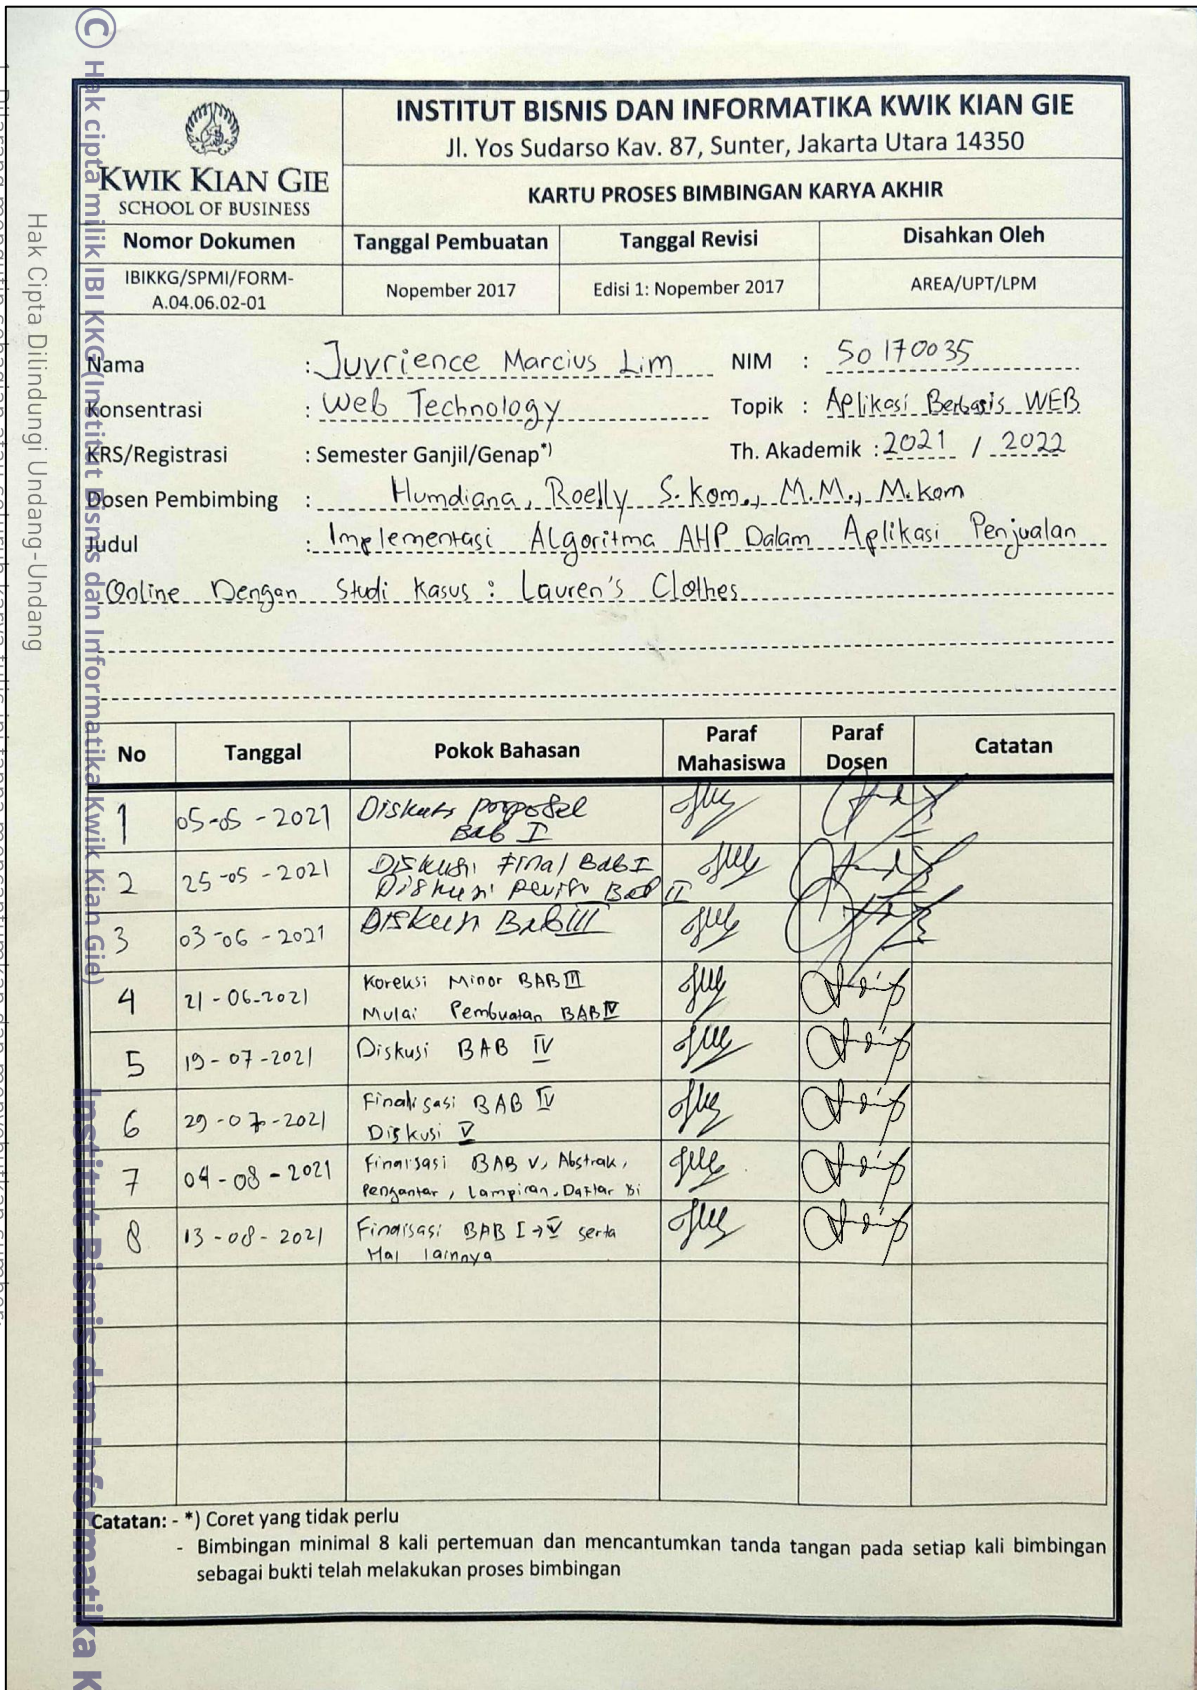 © Hak cipta milik IBI KKG (Institut Bisnis dan Informatika Kwik Kian Gie)
Institut Bisnis dan Informatika K
Hak Cipta Dilindungi Undang-Undang
KWIK KIAN GIE
SCHOOL OF BUSINESS
INSTITUT BISNIS DAN INFORMATIKA KWIK KIAN GIE
Jl. Yos Sudarso Kav. 87, Sunter, Jakarta Utara 14350
KARTU PROSES BIMBINGAN KARYA AKHIR
Nomor Dokumen Tanggal Pembuatan Tanggal Revisi Disahkan Oleh
IBIKKG/SPMI/FORM-
A.04.06.02-01 Nopember 2017 Edisi 1: Nopember 2017 AREA/UPT/LPM
Nama : Juvrience Marcius Lim NIM : 50170035
Konsentrasi : Web Technology Topik : Aplikasi Berbasis WEB
KRS/Registrasi : Semester Ganjil/Genap*) Th. Akademik : 2021 / 2022
Dosen Pembimbing : Humdiana, Roelly S.Kom., M.M., M.kom
Judul : Implementasi Algoritma AHP Dalam Aplikasi Penjualan
Online Dengan Studi Kasus : Lauren's Clothes
No Tanggal Pokok Bahasan Paraf Mahasiswa Paraf Dosen Catatan
1 05-05-2021 Diskusi proposal
Bab I
2 25-05-2021 Diskusi Final Bab I
Diskusi revisi Bab II
3 03-06-2021 Diskusi Bab III
4 21-06-2021 Koreksi Minor BAB III
Mulai Pembuatan BAB IV
5 19-07-2021 Diskusi BAB IV
6 29-07-2021 Finalisasi BAB IV
Diskusi V
7 04-08-2021 Finalsasi BAB V, Abstrak,
Pengantar, Lampiran, Daftar isi
8 13-08-2021 Finalsasi BAB I → V serta
Hal lainnya
Catatan: - *) Coret yang tidak perlu
- Bimbingan minimal 8 kali pertemuan dan mencantumkan tanda tangan pada setiap kali bimbingan
sebagai bukti telah melakukan proses bimbingan